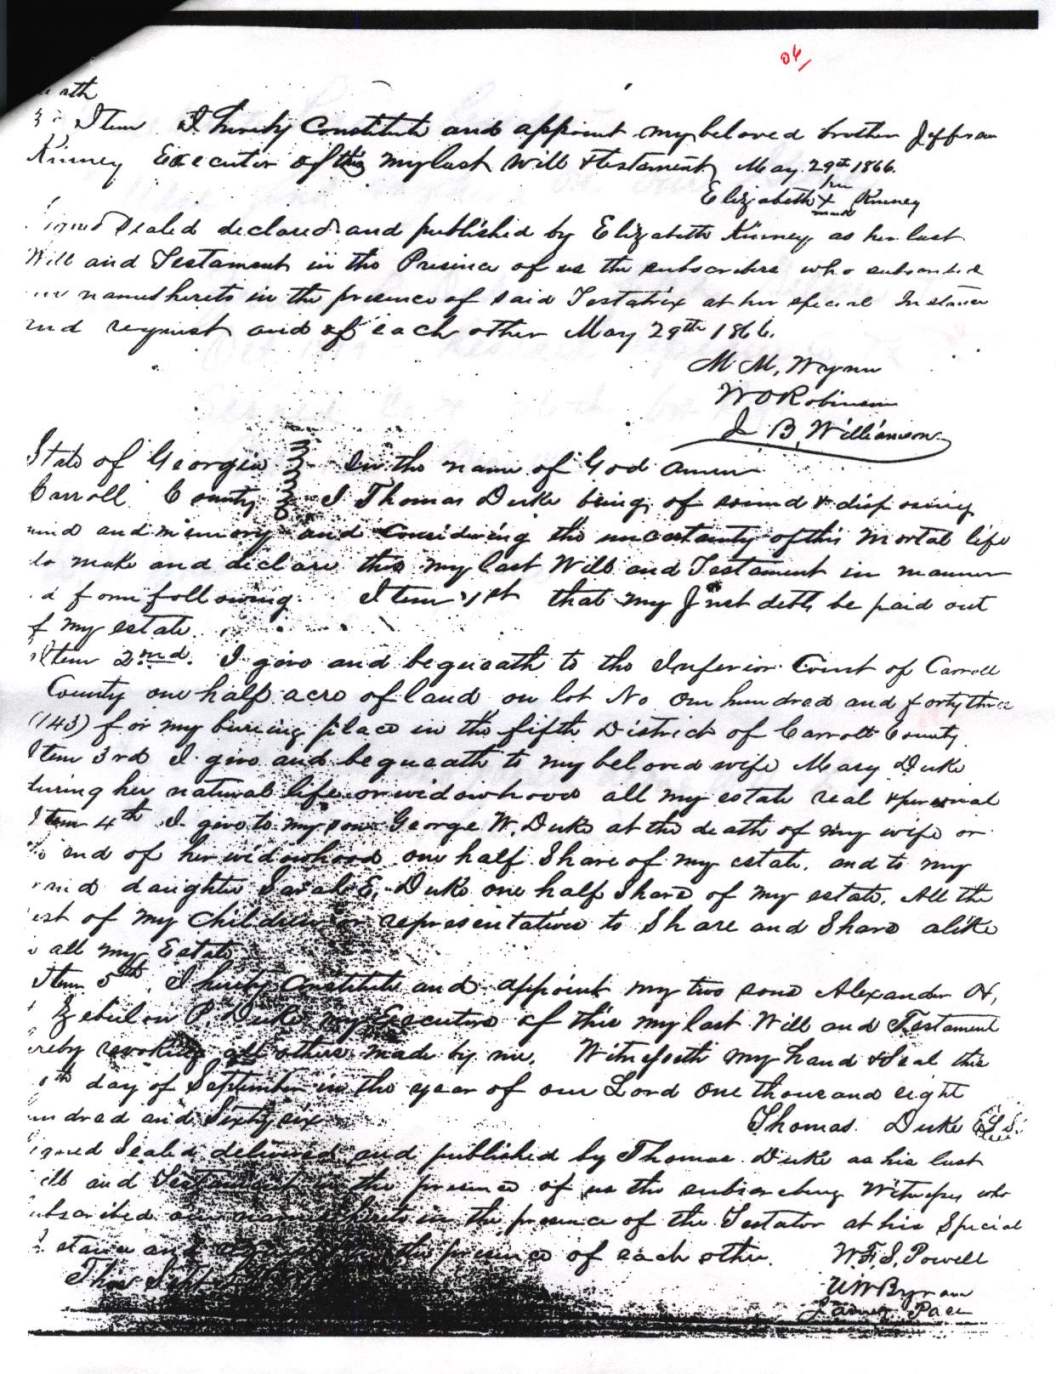 Item I hereby Constitute and appoint my beloved brother
Kinney Executor of this my last Will & Testament May 29th 1866.
Elizabeth X Kinney
mark
Sealed declared and published by Elizabeth Kinney as her last
Will and Testament in the Presince of us the subscribers who subscribed
names hereto in the presence of said Testatrix at her special Instance
and request and of each other May 29th 1866.
M M, Wynn
W O Robinson
J B, Williamson
State of Georgia In the name of God amen
Carroll County I Thomas Duke being of sound & disposing
mind and memory and considering the uncertainty of this mortal life
do make and declare this my last Will and Testament in manner
form following. Item 1st that my Just debts be paid out
of my estate
Item 2nd. I give and bequeath to the Inferior Court of Carroll
County one half acre of land on lot No One hundred and forty three
(143) for my buring place in the fifth District of Carroll County.
Item 3rd I give and bequeath to my beloved wife Mary Duke
during her natural life or widowhood all my estate real & personal
Item 4th I give to my son George W, Duke at the death of my wife or
end of her widowhood one half Share of my estate. and to my
daughter Sarah E, Duke one half Share of my estate, All the
rest of my children or representatives to Share and Share alike
all my Estate
Item 5th. I hereby Constitute and appoint my two sons Alexander H,
Zebulon P. Duke my Executors of this my last Will and Testament
revoking all others made by me. Witnesseth my hand & Seal this
day of September in the year of our Lord One thousand eight
and Sixty six
Thomas Duke L S.
Sealed delivered and published by Thomas Duke as his last
and Testament in the presence of us the subscribing Witnesses who
our names hereto in the presence of the Testator at his Special
and request the presence of each other.
This Sept
W. F, S, Powell
W W Byram
James Pace